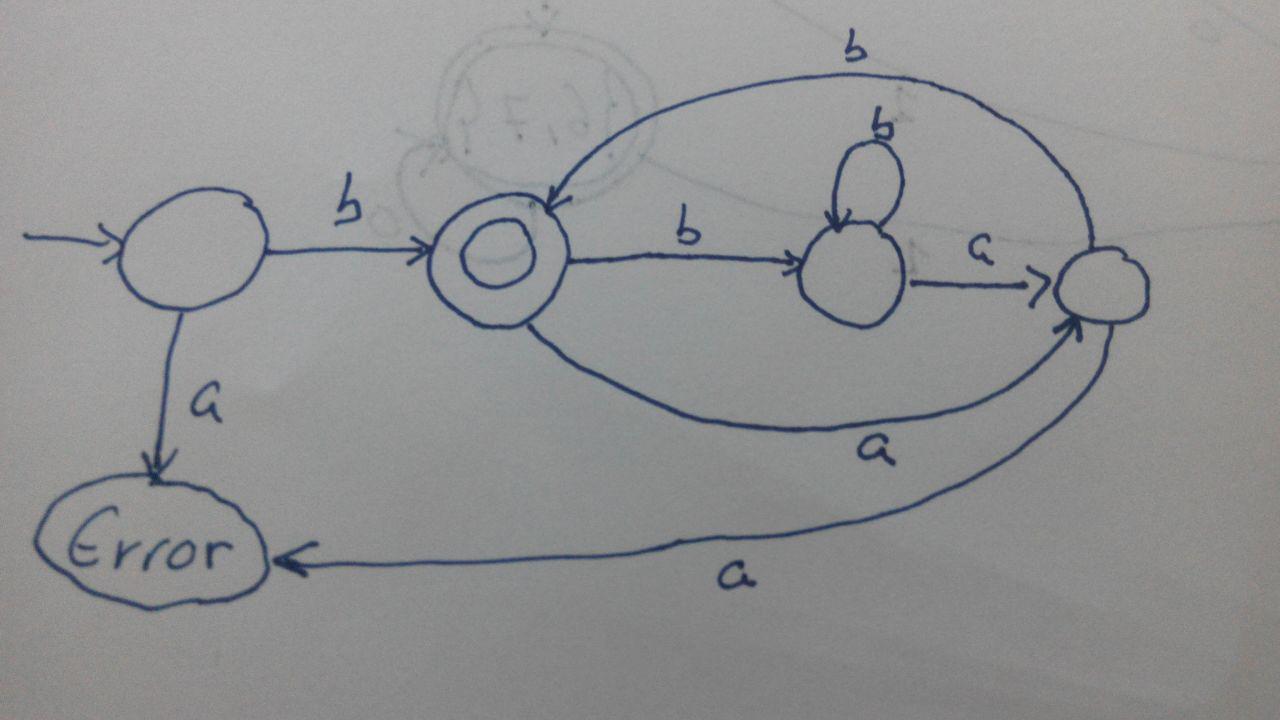 b
b
b
b
a
a
a
Error
a